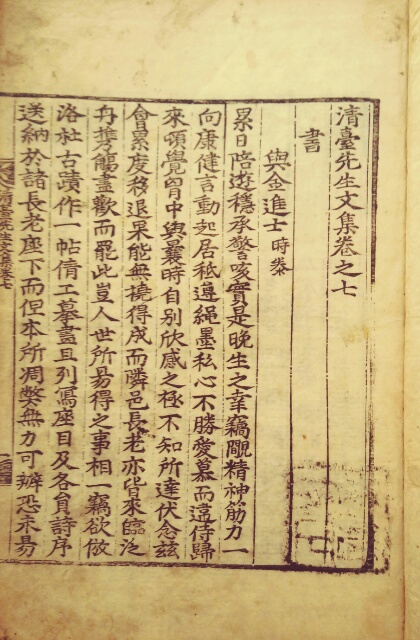 清臺先生文集卷之七
書
與金進士 時泰
累日陪遊穩承警咳實是晚生之幸竊覸精神筋力一
向康健言動起居秪遵繩墨私心不勝愛慕而違侍歸
來頓覺胷中與曩時自别欣感之極不知所達伏念玆
會累度移退果能無撓得成而隣邑長老亦皆來臨泛
舟擕觴盡歡而罷此豈人世所易得之事相一竊欲倣
洛社古蹟作一帖倩工摹畵且列寫座目及各員詩序
送納於諸長老座下而但本所凋弊無力可辦恐未易